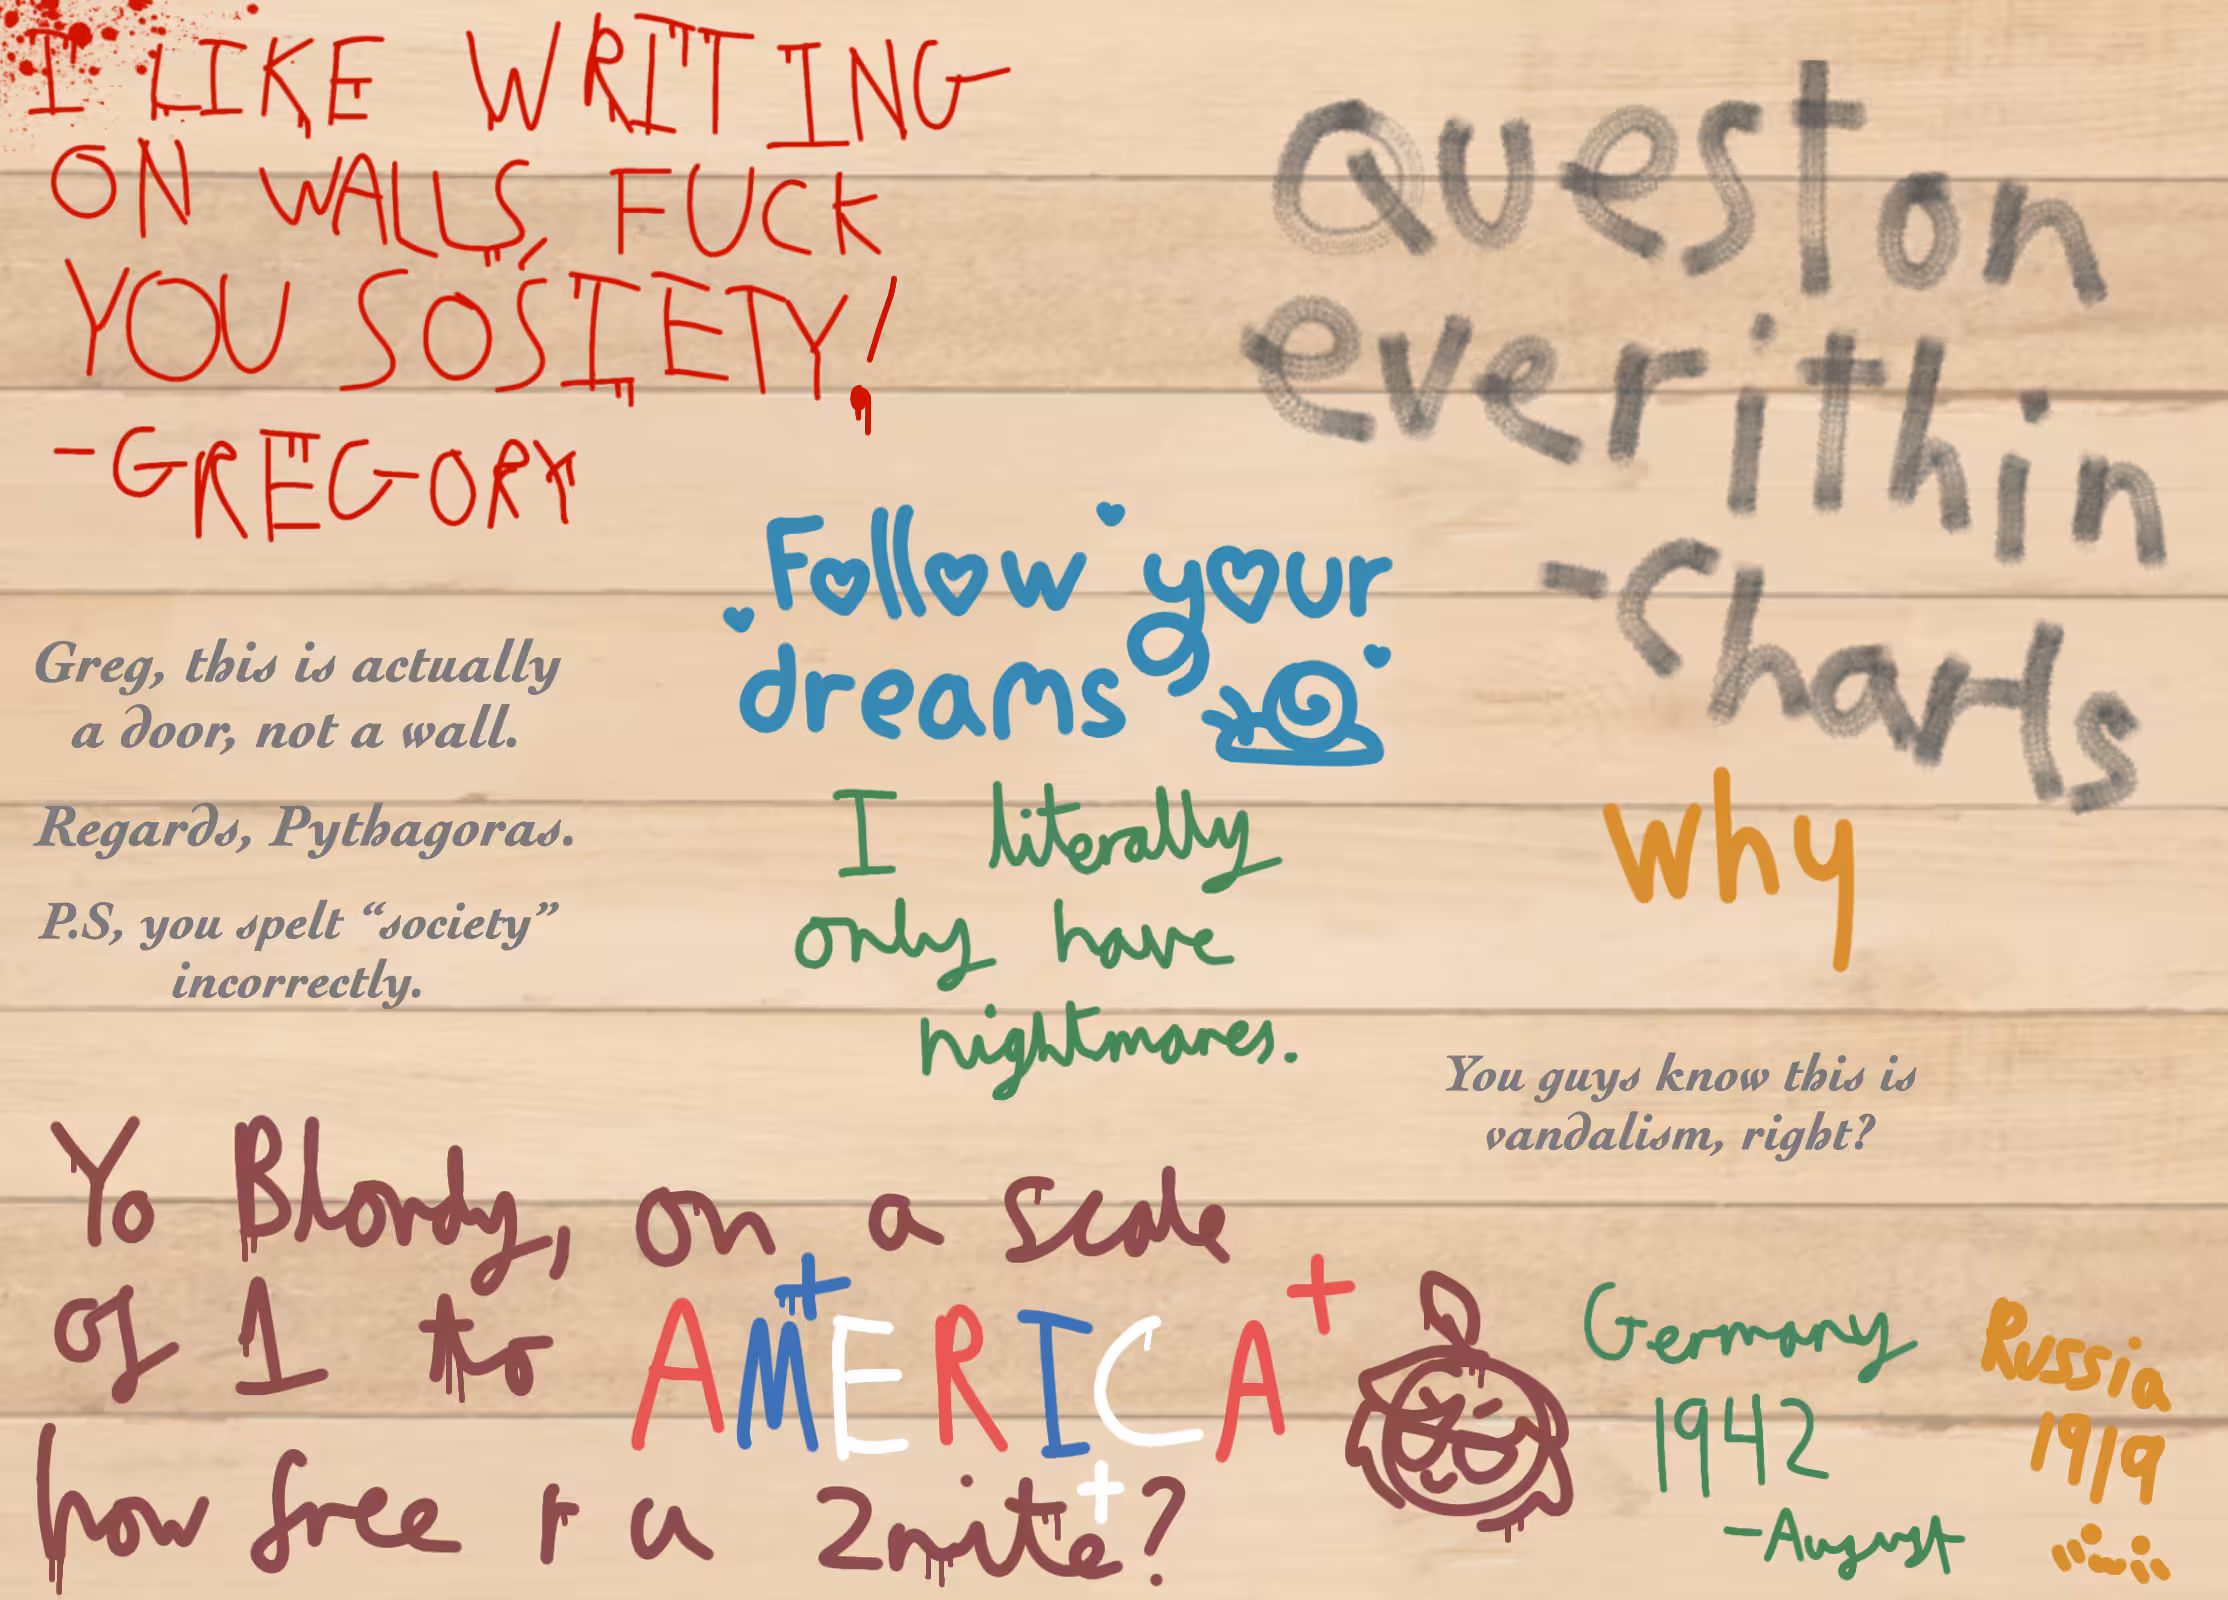 I LIKE WRITTING
ON WALLS, FUCK
YOU SOSIETY!
-GREGORY
Queston
everithin
-Charls
Follow your
dreams
Greg, this is actually
a door, not a wall.
Regards, Pythagoras.
P.S, you spelt “society”
incorrectly.
I literally
only have
nightmares.
Why
You guys know this is
vandalism, right?
Yo Blondy, on a scale
of 1 to AMERICA
how free r u 2nite?
Germany
1942
-August
Russia
1919